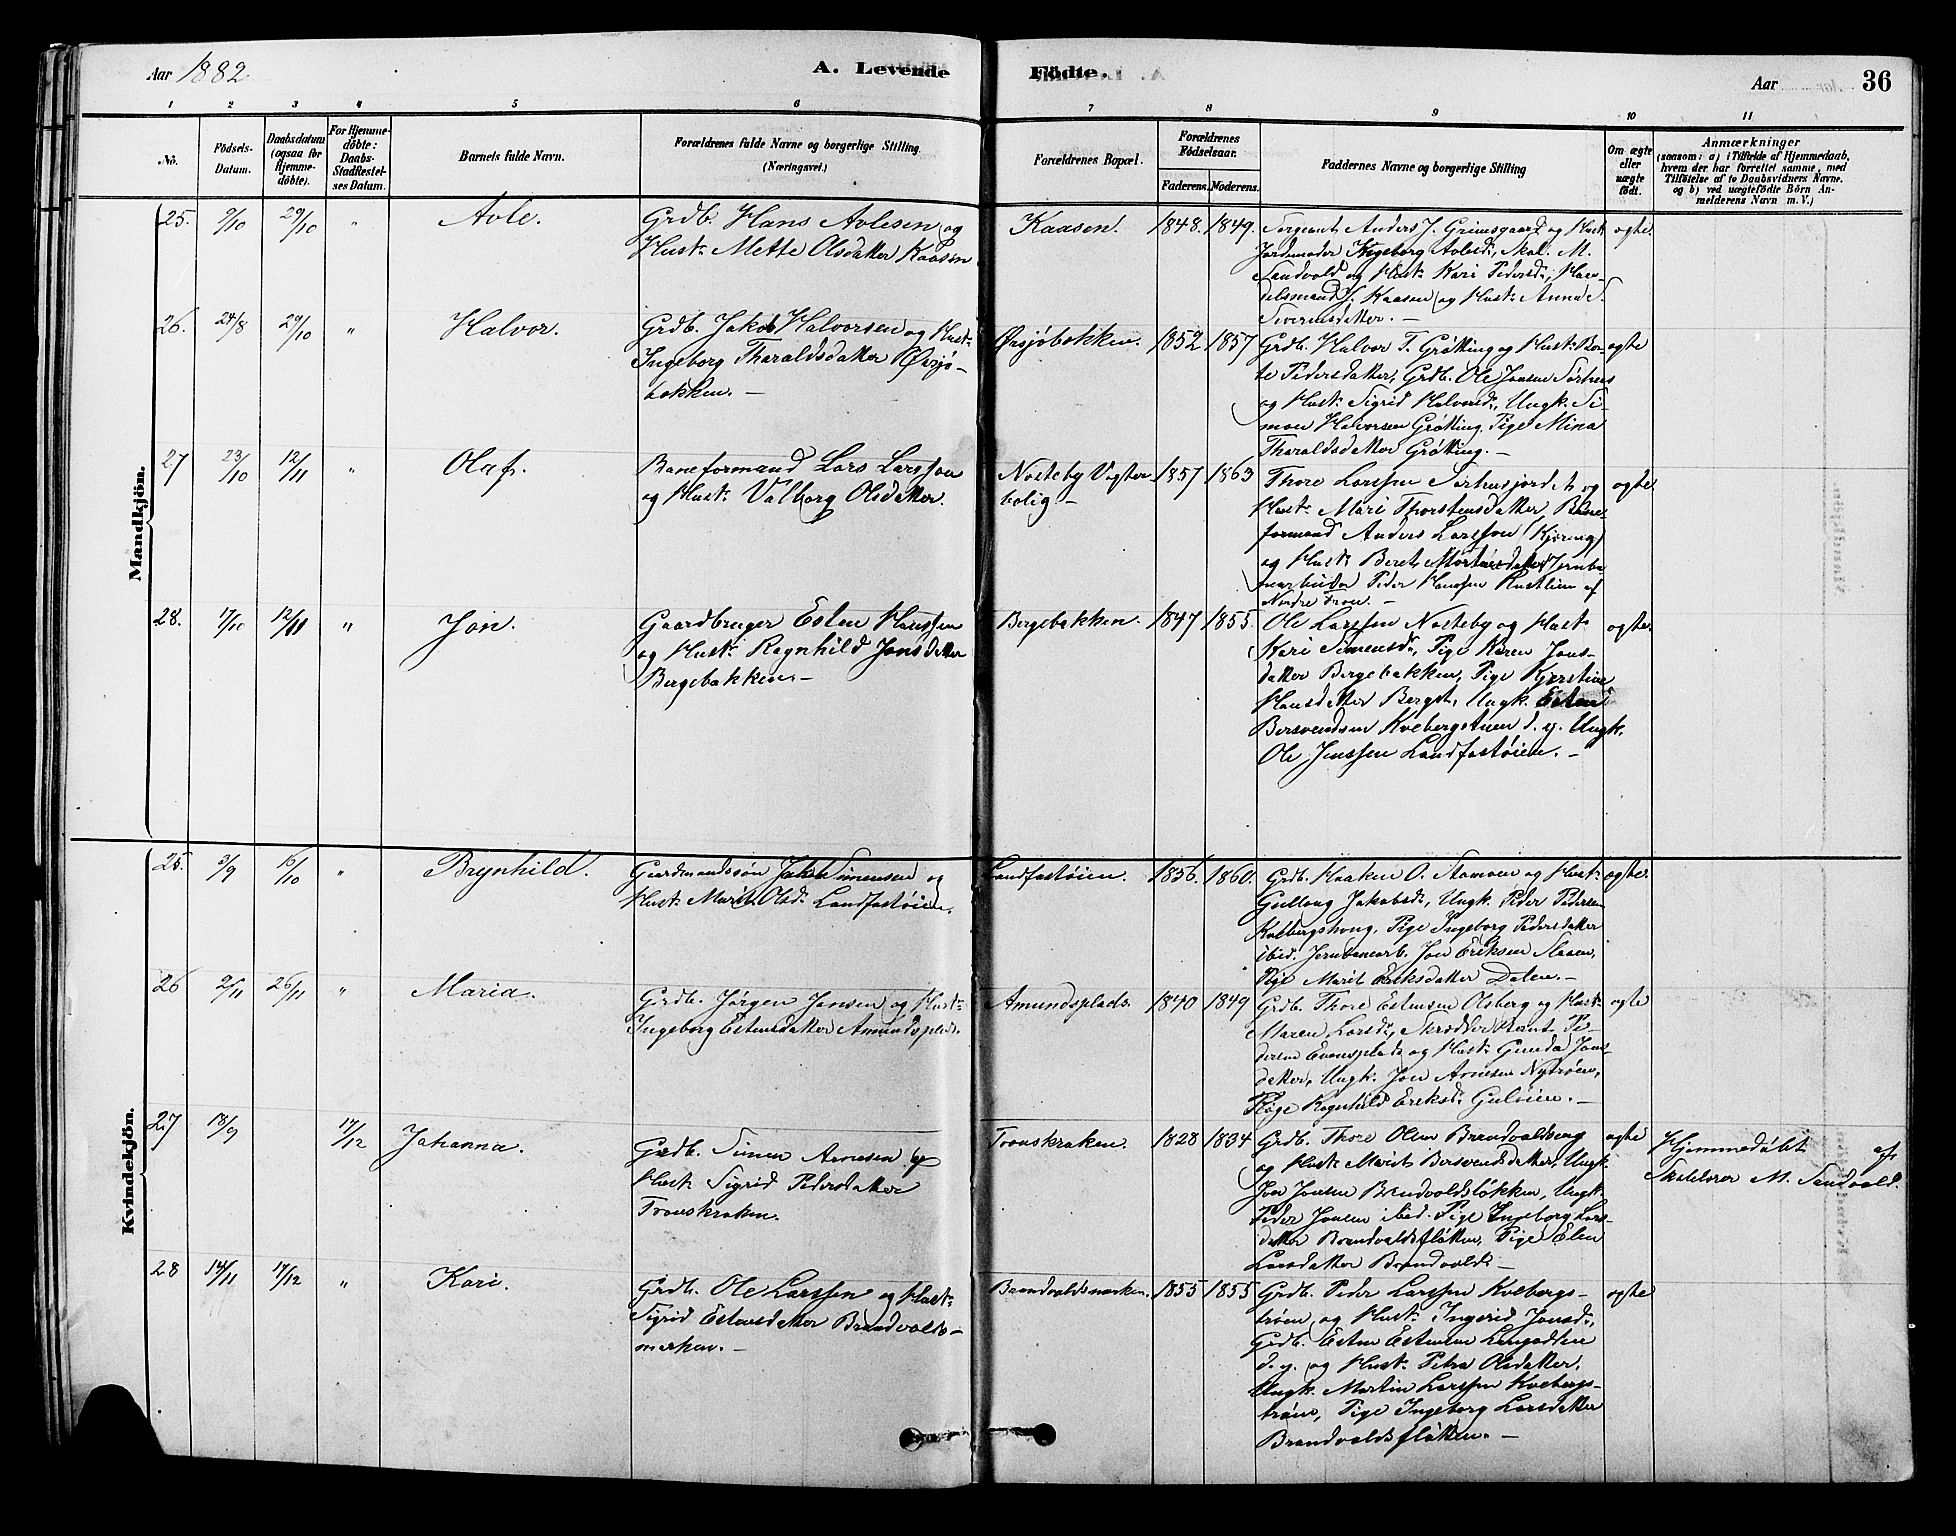 Aar 1882
A. Levende
Födte.
Aar
36
1 2 3 4 5 6 7 8 9 10 11
No.
Födsels-
Datum.
Daabsdatum
(ogsaa for
Hjemme-
döbte).
For Hjemme-
döbte:
Daabs-
Stadfæstel-
ses Datum.
Barnets fulde Navn.
Forældrenes fulde Navne og borgerlige Stilling.
(Næringsvei.)
Forældrenes Bopæl.
Forældrenes
Födselsaar.
Faderens. Moderens.
Faddernes Navne og borgerlige Stilling
Om ægte
eller
uægte
födt.
Anmærkninger
(saasom: a) i Tilfælde af Hjemmedaab,
hvem der har forrettet samme, med
Tilföielse af to Daabsvidners Navne.
og b) ved uægtefödte Börn An-
melderens Navn m. V.)
Mandkjön.
25. 9/10 29/10 " Avle.
Grdb. Hans Avlesen og
Hust: Mette Olsdatter Kaasen
Kaasen. 1848. 1849.
Sergeant Anders J. Grimsgaard og Hust
Jordmoder Ingeborg Avlesd:, Skol. M.
Sandvold og Hust: Kari Pedersd:, Han-
delsmand J. Kaasen og Hust: Anna S.
Siverinsdatter. –
ægte.
26. 24/8 29/10 " Halvor.
Grdb. Jakob Halvorsen og Hust:
Ingeborg Tharaldsdatter Øvsjø-
bakken. –
Øvsjøbakken. 1852 1857
Grdb. Halvor T. Grøtting og Hust: Be-
te Pedersdatter, Grdb. Ole Jonsen Sørhus
og Hust: Sigrid Halvorsd:, Ungk. Si-
mon Halvorsen Grøtting. Pige Mina
Tharaldsdatter Grøtting. –
ægte
27 23/10 12/11 " Olaf.
Baneformand Lars Larsson
og Hust: Valborg Olsdatter.
Nosteby Vogter
bolig – 1857 1863
Thore Larssen Sørhusjordet og
Hust: Mari Thorstensdatter Bane-
formand Anders Larsson (Kjøring)
og Hust: Beret Mortensdatter Jernba
nearbeider Peder Hanssen Rustlien af
Nordre Fron. –
ægte.
28. 17/10 12/11 " Jon.
Gaardbruger Esten Hanssen
og Hust: Ragnhild Jonsdatter
Bergebakken. –
Bergebakken. 1847 1855.
Ole Larssen Nosteby og Hust:
Kari Simensd:, Pige Karen Jons-
datter Bergebakken, Pige Kjerstine
Hansdatter Berget, Ungk. Esten
Bersvendsen Kvebergstuen d. y. Ungk.
Ole Jenssen Landfastøien. –
ægte.
Kvindekjön.
25. 3/9 15/10 " Brynhild.
Gaardmandssøn Jakob Simensen og
Hust: Marit Olsd: Landfastøien.
Landfastøien. 1856. 1860.
Grdb. Haaken O. Stamoen og Hust:
Gullaug Jakobsd:, Ungk. Peder Pedersen
Kvebergshaug, Pige Ingeborg Pedersdatter
ibid. Jernbanearb. Jon Eriksen Slaaen,
Pige Marit Eriksdatter Dalen. –
ægte.
26 2/11 26/11 " Maria.
Grdb. Jørgen Jonsen og Hust:
Ingeborg Estensdatter Amundsplads.
Amundsplads. 1840 1849
Grdb. Thore Estensen Olsberg og Hust:
Maren Larsd:, Skrædder Bernt Pe-
dersen Evensplads og Hust: Gunda Jons-
datter, Ungk. Jon Arnesen Nytrøen,
Pige Ragnhild Eriksd: Guløien. –
ægte
27 18/9 17/12 Johanna.
Grdb. Simen Arnesen og
Hust: Sigrid Pedersdatter
Tronskraken.
Tronskraken. 1828 1834
Grdb. Thore Olsen Brandvoldseng
og Hust: Marit Bersvendsdatter, Ungk.
Jon Jonsen Brandvoldsløkken, Ungk.
Peder Jonsen ibid. Pige Ingeborg Lars-
datter Brandvoldsfløtten, Pige Elen
Larsdatter Brandvold. –
ægte
Hjemmedøbt af
Skolelærer M. Sandvold.
28 14/11 17/12 " Kari.
Grdb. Ole Larssen og Hust:
Sigrid Estensdatter Brandvolds-
marken. –
Brandvoldsmarken. 1855 1855
Grdb. Peder Larssen Kvebergs-
trøen og Hust: Ingerid Jonsd:,
Grdb. Esten Estensen Langodden
d. y. og Hust: Petra Olsdatter.
Ungk. Martin Larssen Kvebergs-
trøen, Pige Ingeborg Larsdatter
Brandvoldsfløtten. –
ægte